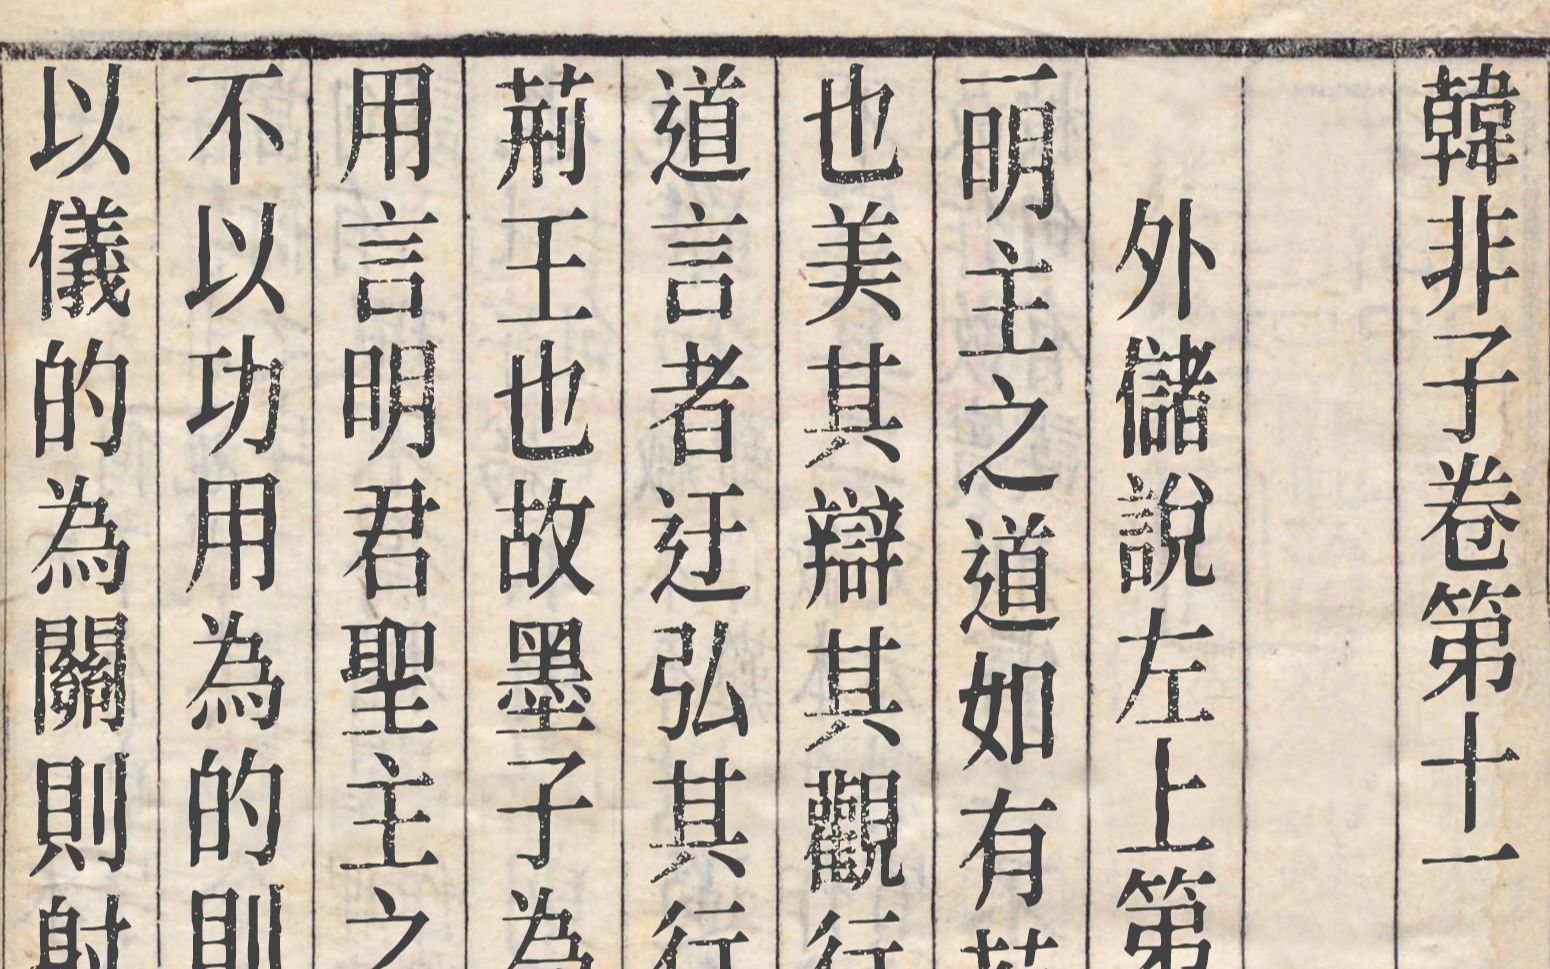 韓非子卷第十一
外儲說左上第
一明主之道如有
也美其辯其觀行
道言者迂弘其行
荊王也故墨子為
用言明君聖主之
不以功用為的則
以儀的為關則射